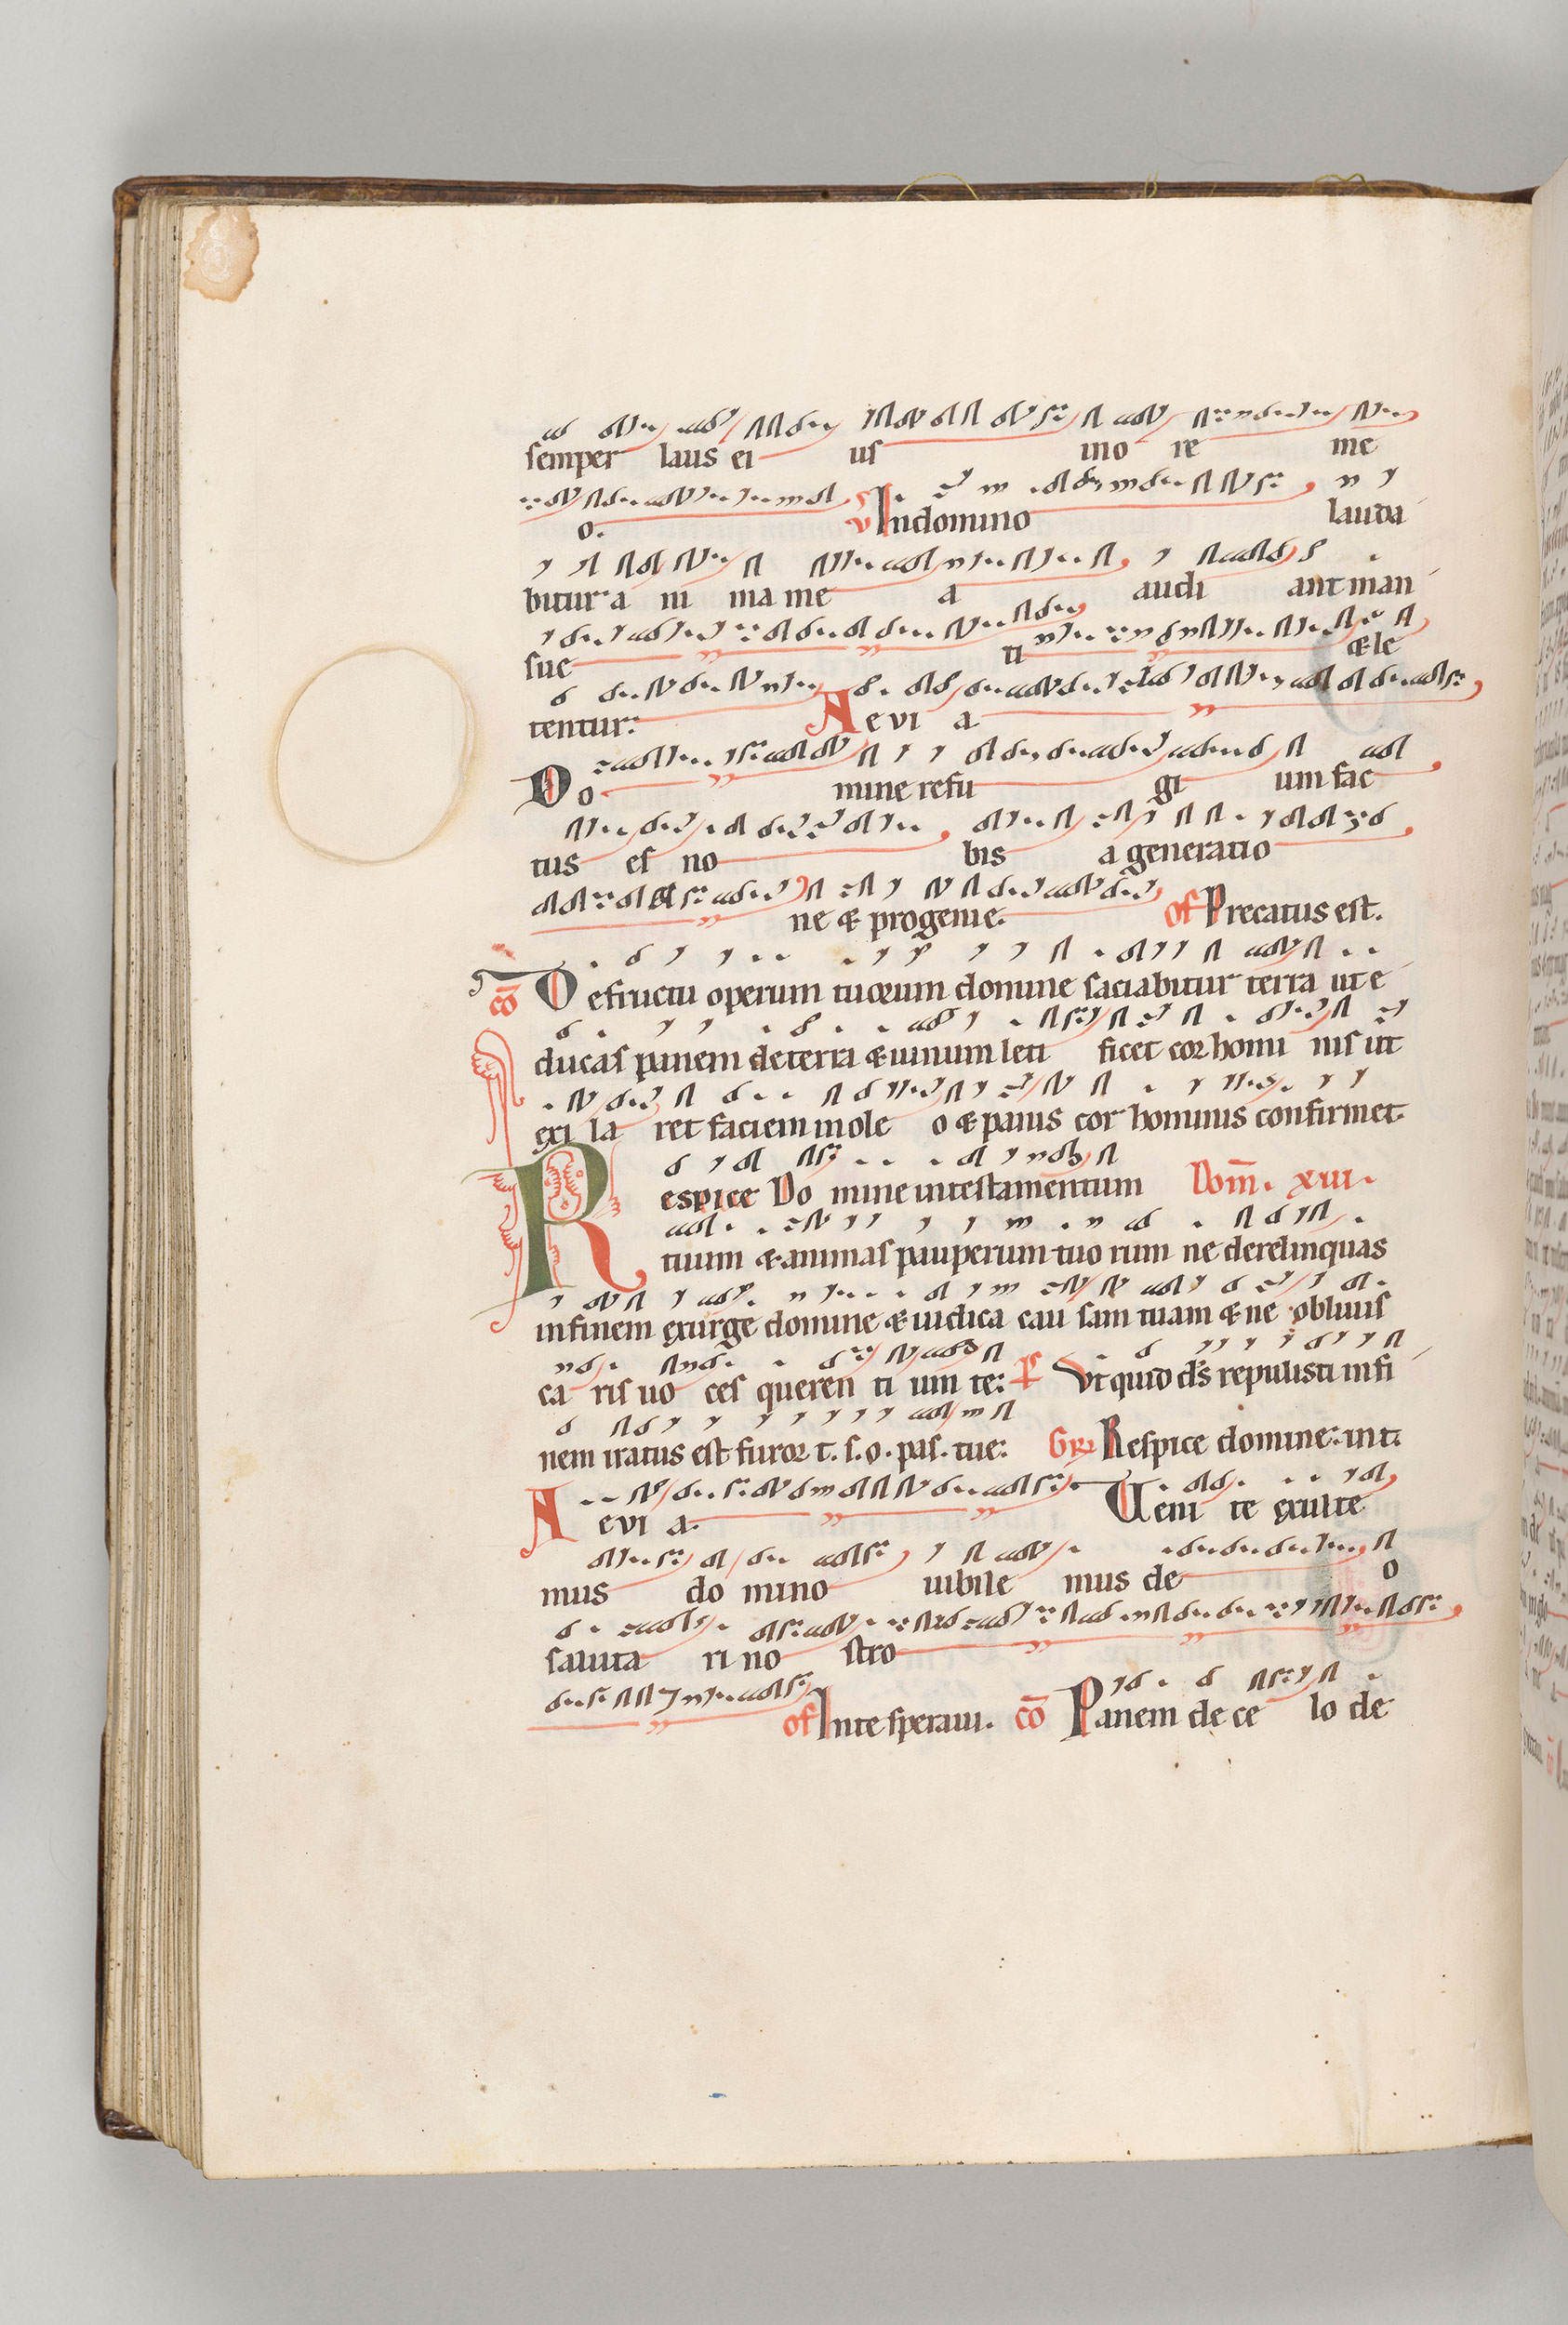 semper laus ei us ino re me
o. v Indomino lauda
bitur a ni ma me a audi ant man
sue ti & le
tentur: Aevi a
Do mine refu gi um fac
tus es no bis a generatio
ne & progenie. of Precatus est.
cō De fructu operum tuorum domine saciabitur terra ut e
ducas panem de terra & uinum leti ficet cor homi nis ut
exi la ret faciem inole o & panis cor hominis confirmet.
Respice Do mine intestamentum Dom̄. xiii.
tuum & animas pauperum tuo rum ne derelinquas
infinem exurge domine & iudica cau sam tuam & ne obliuis
ca ris uo ces queren ti um te: Ps Vt quid d̄s repulisti infi
nem iratus est furor t. s. o. pas. tue: GR Respice domine: int:
Aevi a. Ueni te exulte
mus do mino iubile mus de o
saluta ri no stro
of Inte speraui. cō Panem de ce lo de